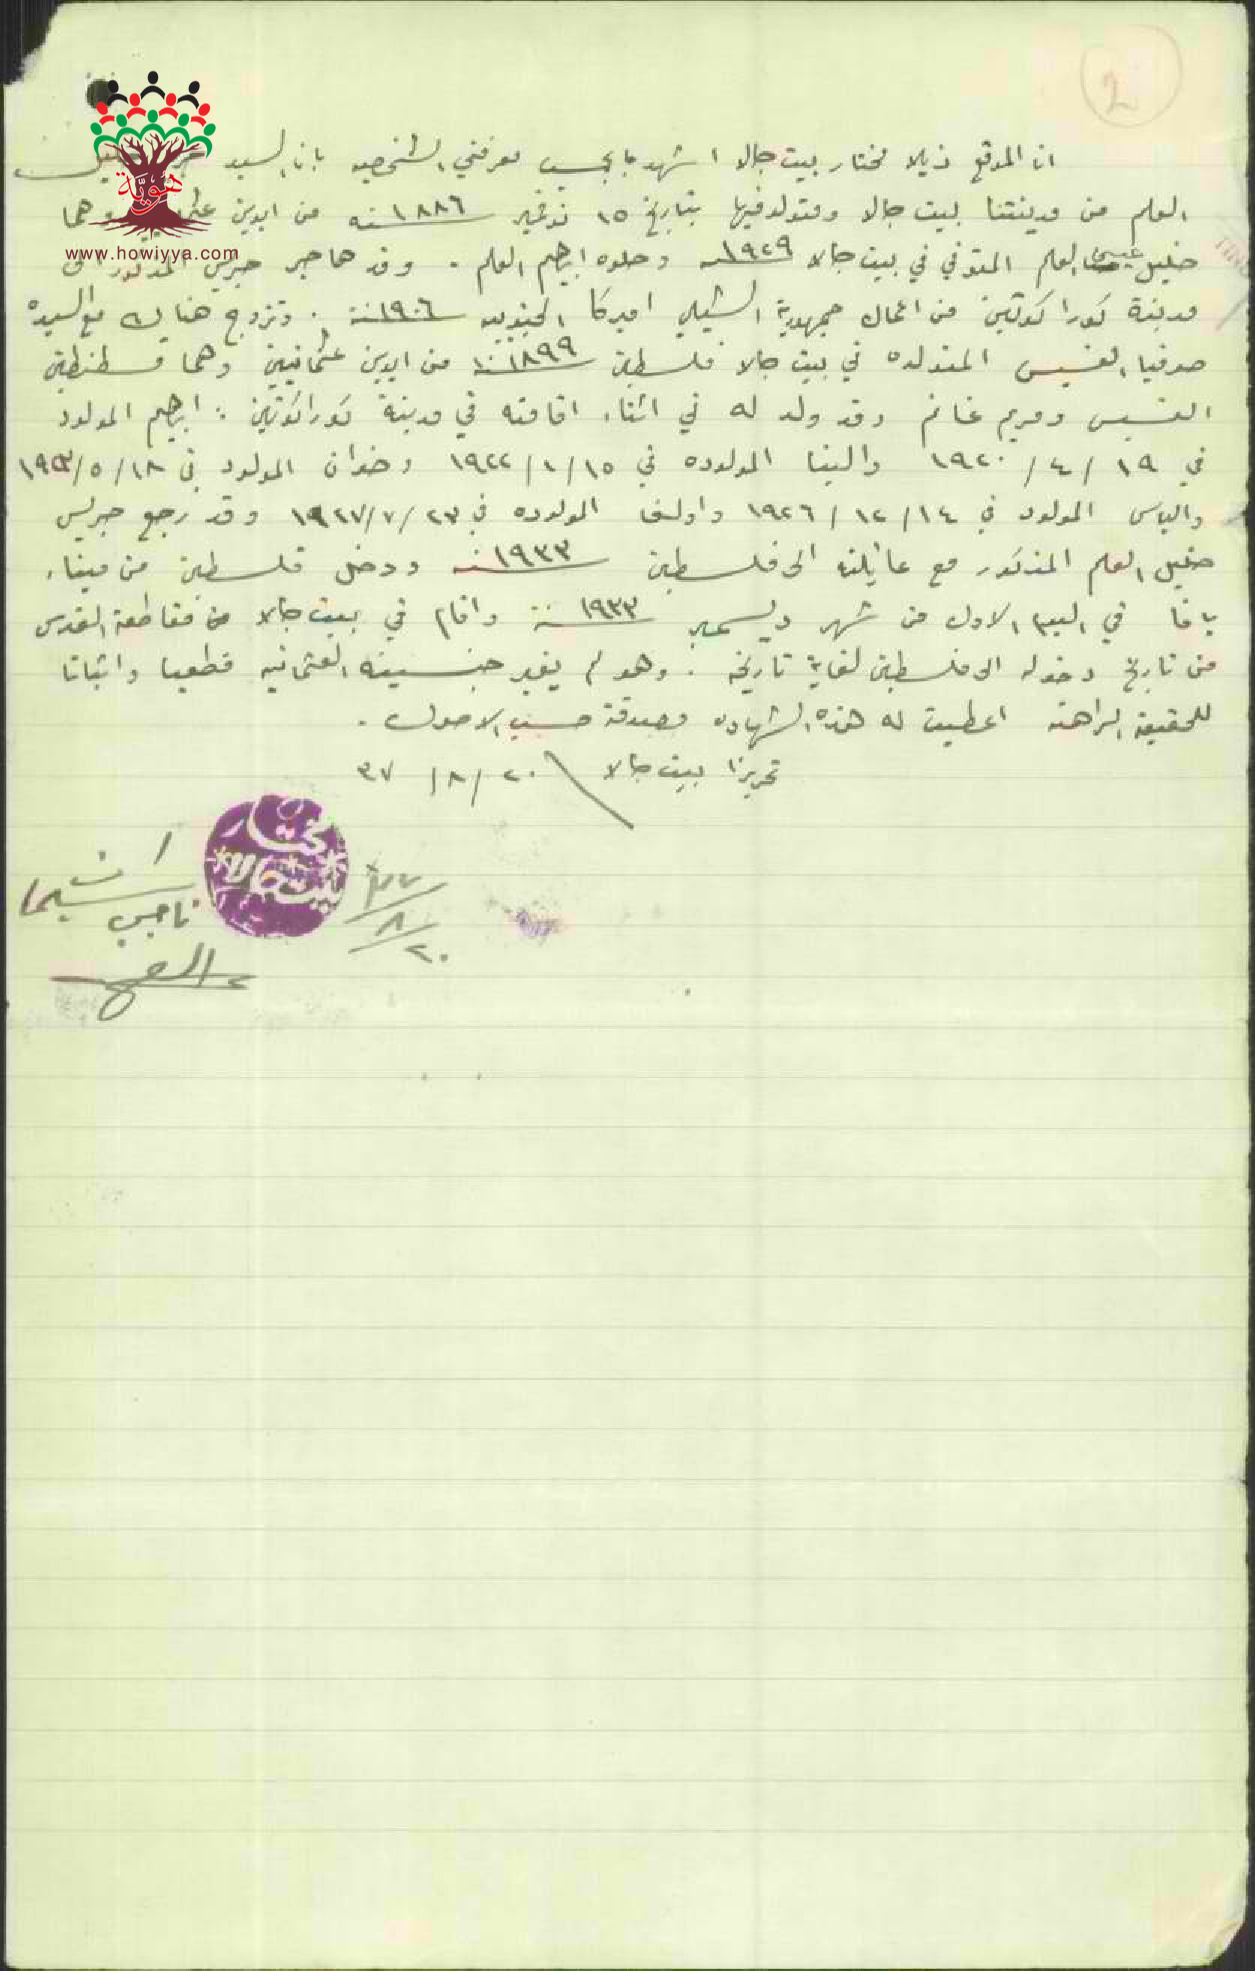 2
انا الموقع ذيلا مختار بيت جالا اشهد بحسب معرفتي الشخصيه بان السيد
العلم من مدينتنا بيت جالا ومتولد فيها بتاريخ ١٥ نوفمبر سنه ١٨٨٦ من ابوين وهما
خليل عيسى العلم المتوفي في بيت جالا سنه ١٩٢٩ وحلوه ابراهيم العلم . وقد هاجر جبريس المذكور الى
مدينة كوراكوتين من اعمال جمهورية الشيلي اميركا الجنوبيه سنة ١٩٠٦ . وتزوج هناك مع السيده
صوفيا القسيس المتولده في بيت جالا فلسطين سنة ١٨٩٩ من ابوين عثمانيين وهما قسطنطين
القسيس ومريم غانم وقد ولد له في اثناء اقامته في مدينة كوراكوتين : ابراهيم المولود
في ١٩ / ٤ / ١٩٢٠ والينا المولوده في ١٥ / ١ / ١٩٢٢ وخوان المولود في ١٨ / ٥ /
والياس المولود في ١٤ / ١٢ / ١٩٢٦ واولغا المولوده في ٢٣ / ٧ / ١٩٢٧ وقد رجع جبريس
خليل العلم المذكور مع عائلته الى فلسطين سنة ١٩٣٣ ودخل فلسطين من ميناء
يافا في اليوم الاول من شهر ديسمبر سنة ١٩٣٣ واقام في بيت جالا من مقاطعة القدس
من تاريخ دخوله الى فلسطين لغاية تاريخه . وهو لم يغير جنسيته العثمانيه قطعيا واثباتا
للحقيقة الراهنه اعطيت له هذه الشهاده مصدقة حسب الاصول .
تحريرا بيت جالا ٢٠ / ٨ / ٣٧
مختار
بيت جالا
٣٧
٨
٢٠
هوية
www.howiyya.com